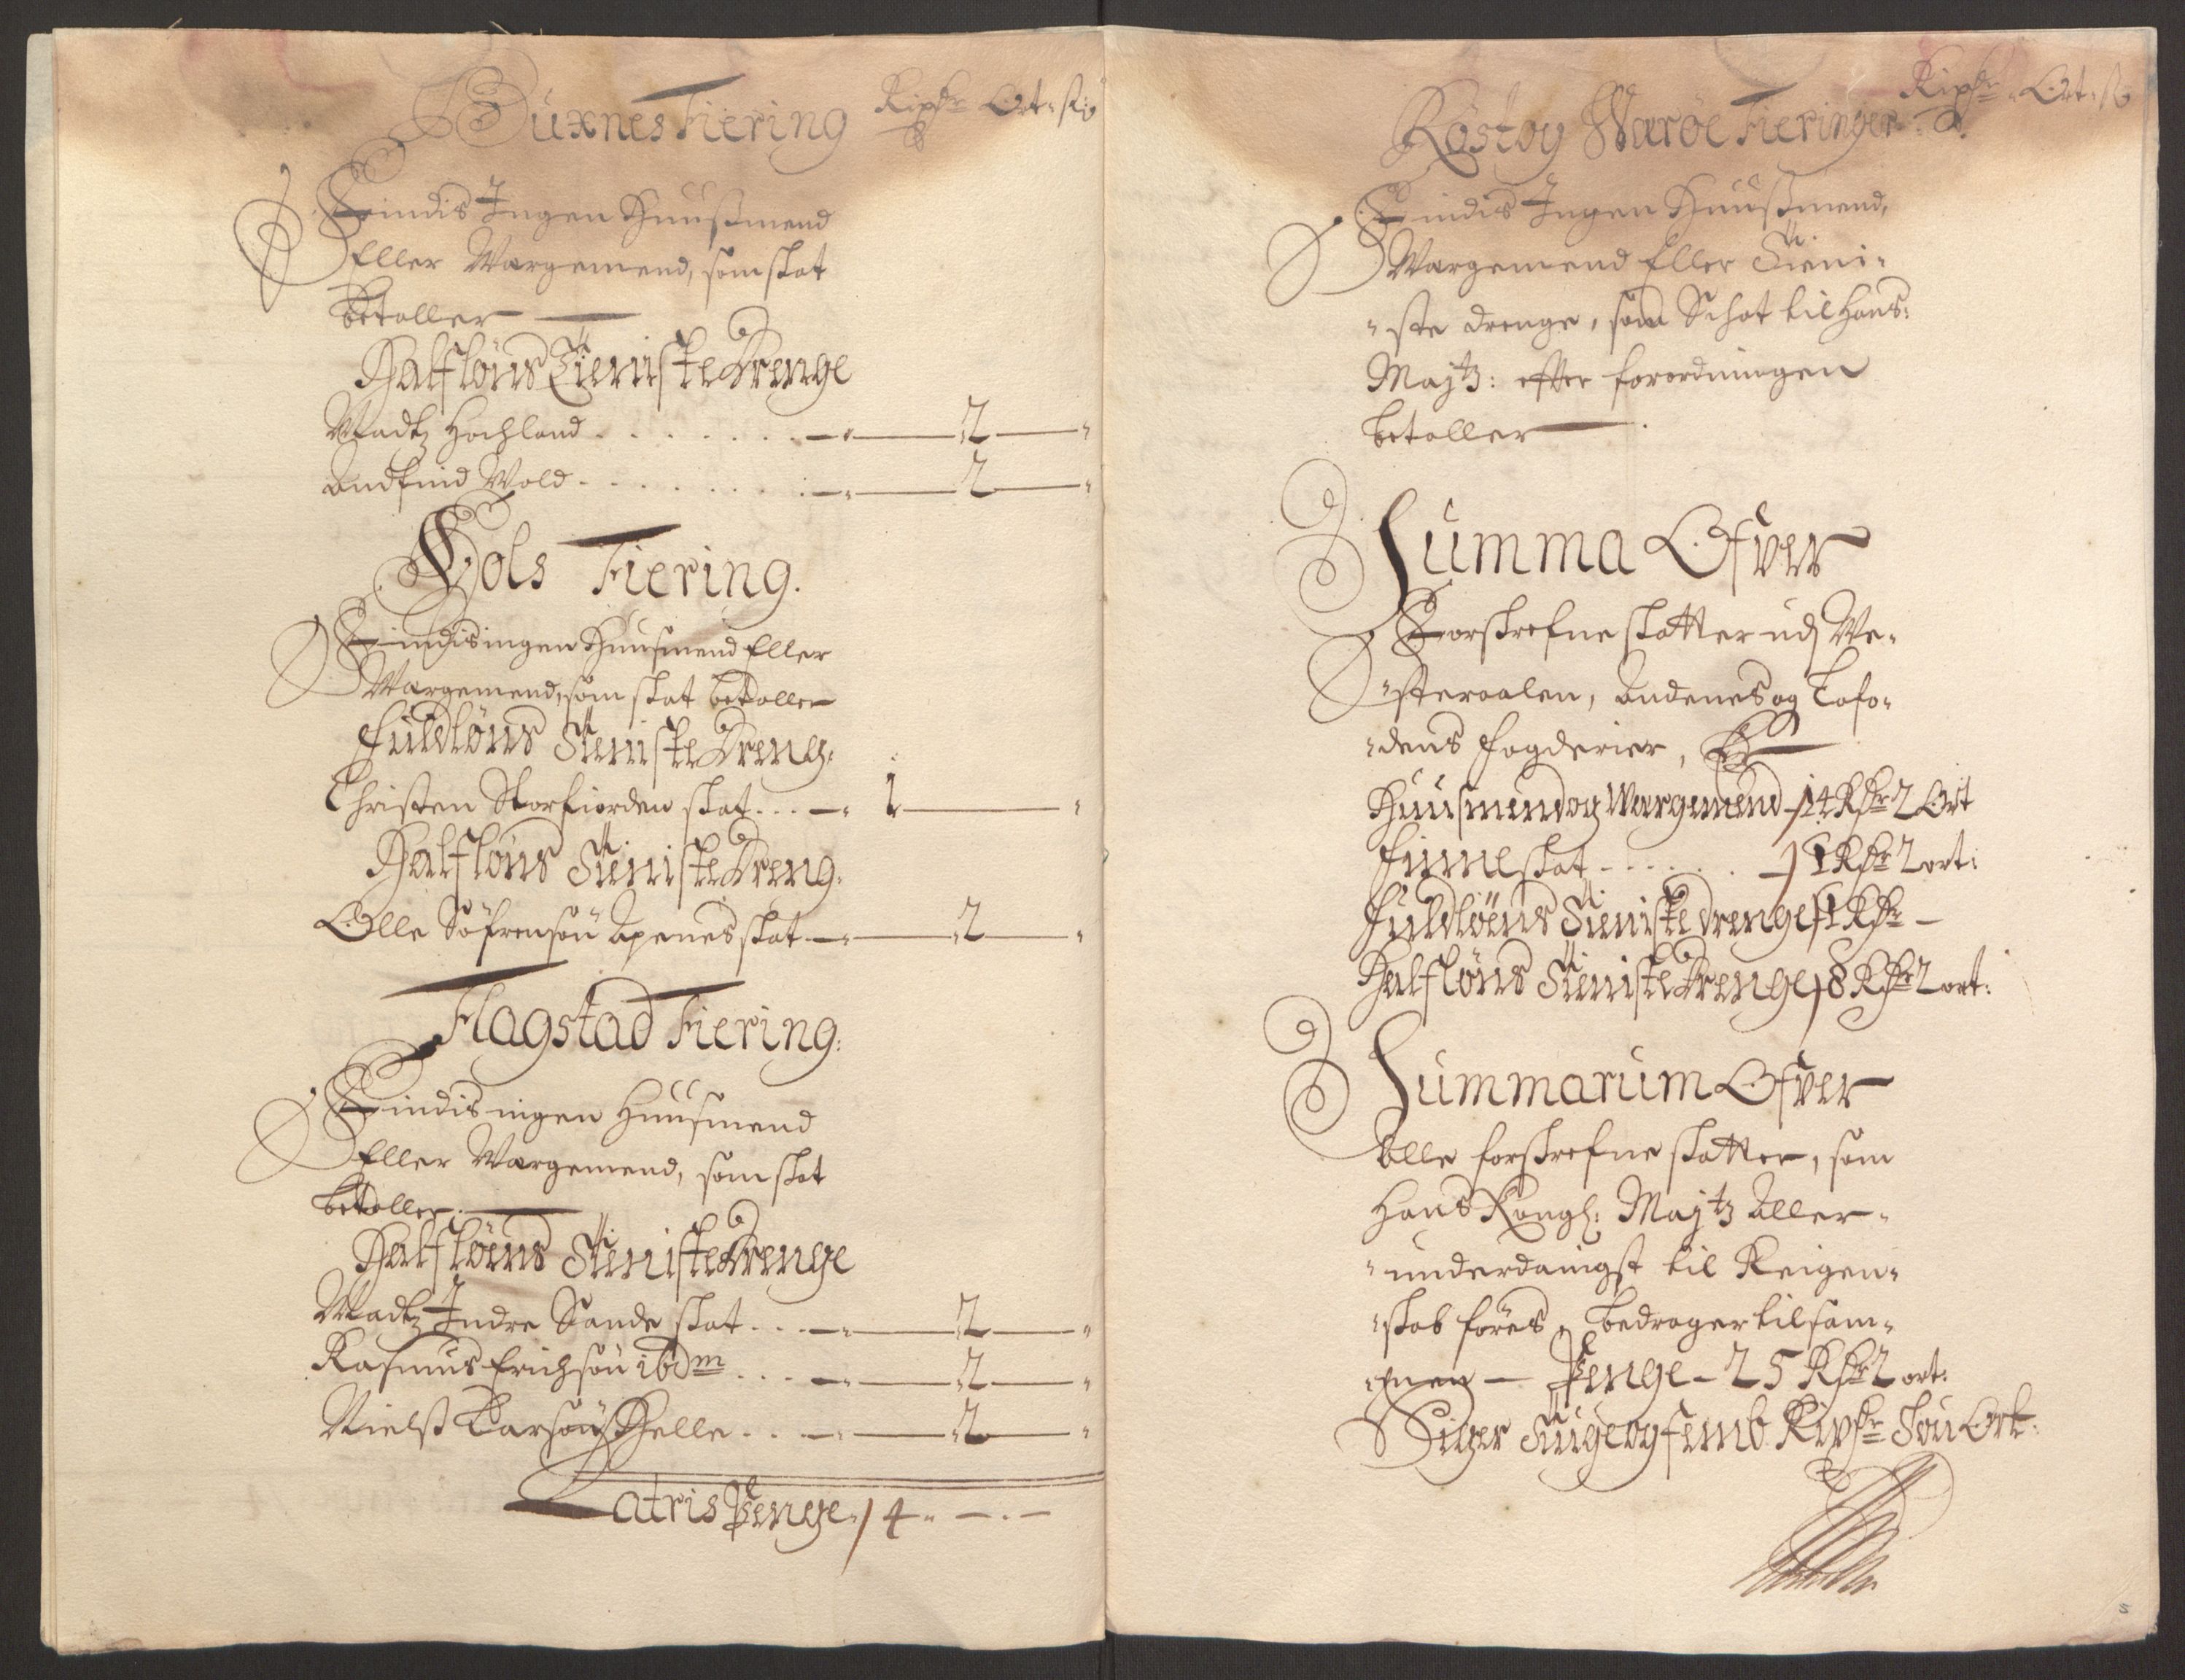 Buxnes Fiering Rixdr Ort sk
Findis Ingen Huusmend
Eller Wargemend, som skat
betaller
Halfløns Tieniste Drenge
Madtz Hochland - 2 -
Andfind Wold - 2 -
Hols Fiering.
Findis ingen Huusmend Eller
Wargemend, som skat betaller
Fuldløns Tieniste Dreng:
Christen Storfiorden skat - 1 -
Halfløns Tieniste Dreng:
Olle Søfrensøn Apenes skat - 2 -
Flagstad Fiering:
Findis ingen Huusmend
Eller Wargemend, som skat
betaller
Halfløens Tieniste Drenge
Madtz Indre Sande skat - 2 -
Rasmus Erichsøn ibdm - 2 -
Nielss Larsøn Helle - 2 -
Latris Penge - 4 - - -
Røst og Werøe Fieringer Rixdr Ort sk
Findis Ingen Huusmend,
Wargemend Eller Tieni-
ste drenge, som Schat til Hans:
Majtz: efter forordningen
betaller
Summa Ofver
Forskrefne skatter udj We-
steraalen, Andenes og Lofo-
dens fogderier, Er
Huusmend og Wargemend - 14 Rdr 2 Ort
Finneskat - 1 Rdr 2 ort:
Fuldløens Tieniste drenge 1 Rdr -
Halfløns Tieniste Drenge 8 Rdr 2 ort:
Summarum Ofver
Alle forskrefne skatter, som
Hans Kongl: Majtz Aller-
underdanigst til Reigen-
skab føres, bedrager tilsam-
men - Penge - 25 Rdr 2 ort:
Siger Tiuge og femb Rixdr Tou Ort:
5